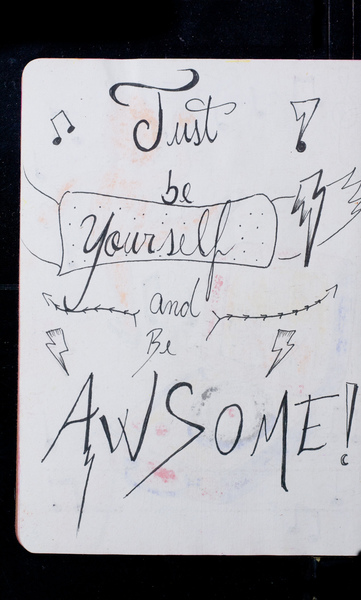 Just
be
Yourself
and
Be
AWSOME!